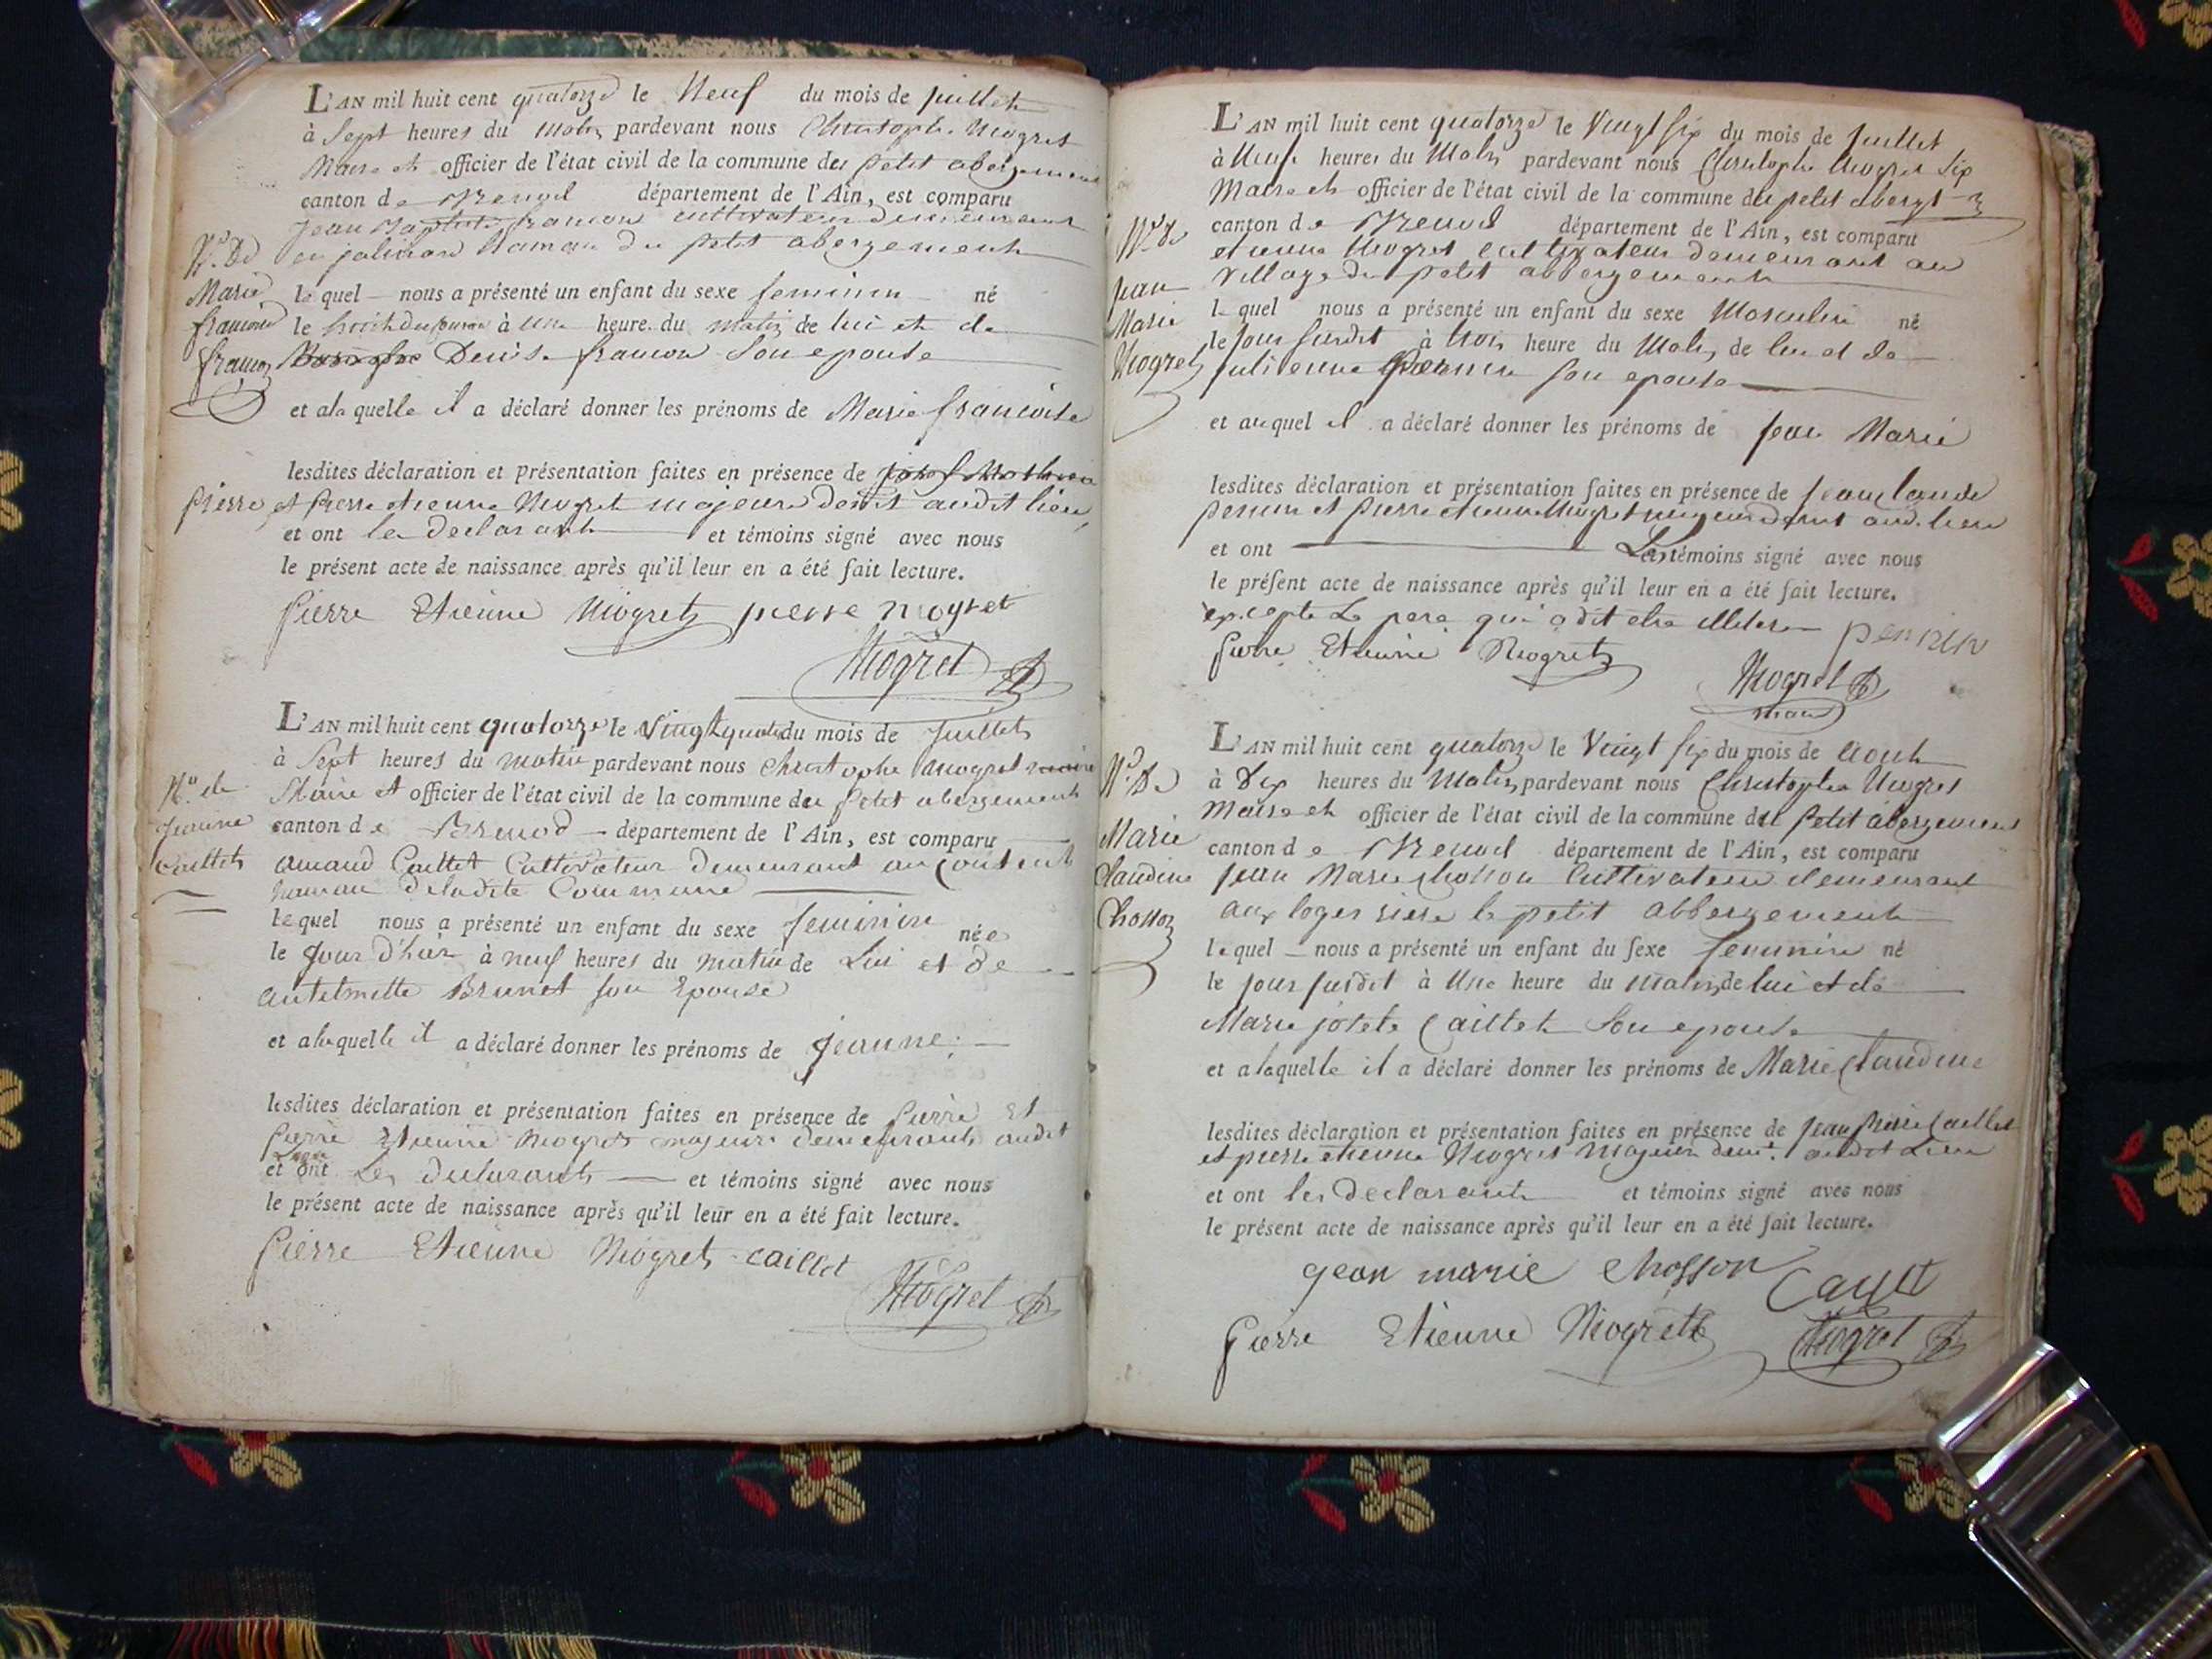 L'AN mil huit cent quatorze le Neuf du mois de juillet
à Sept heures du Matin pardevant nous Christophe Niogret
Maire et officier de l'état civil de la commune du petit abergement
canton de Brenod département de l'Ain, est comparu
Jean Baptiste francon cultivateur demeurant
en jalinard hamau du petit abergement
Ne. De
Marie
francoise
francon
le quel nous a présenté un enfant du sexe feminin né
le huit du courant à une heure du matin de lui et de
Denise francon son epouse
et a la quelle il a déclaré donner les prénoms de Marie francoise
lesdites déclaration et présentation faites en présence de
pierre et pierre etienne Niogret majeurs audit lieu
et ont les declarant et témoins signé avec nous
le présent acte de naissance après qu'il leur en a été fait lecture.
pierre Etienne Niogret pierre niogret
Niogret
L'AN mil huit cent quatorze le vingt quatre du mois de Juillet
à Sept heures du matin pardevant nous Christophe Niogret maire
Maire et officier de l'état civil de la commune du petit abergement
canton de Brenod département de l'Ain, est comparu
Ne. de
Jeanne
Caillet
amand Caillet Cultivateur demeurant au
hamau deladite Commune
lequel nous a présenté un enfant du sexe feminin née
le Jour d'hier à neuf heures du matin de Lui et de
antelmette Brunet son Epouse
et a laquelle il a déclaré donner les prénoms de jeanne
lesdites déclaration et présentation faites en présence de pierre et
pierre Etienne Niogret majeurs demeurants audit
et ont Les declarants et témoins signé avec nous
le présent acte de naissance après qu'il leur en a été fait lecture.
pierre Etienne Niogret caillet
Niogret
L'AN mil huit cent quatorze le Vingt six du mois de juillet
à Neuf heures du Matin pardevant nous Christophe Niogret
Maire et officier de l'état civil de la commune du petit abergt
canton de Brenod département de l'Ain, est comparu
Ne. de
Jean
Marie
Niogret
etienne Niogret cultivateur demeurant au
village du petit abbergement
le quel nous a présenté un enfant du sexe Masculin né
le jour susdit à trois heure du Matin de lui et de
julienne perrin son epouse
et au quel il a déclaré donner les prénoms de jean Marie
lesdites déclaration et présentation faites en présence de jean claude
perrin et pierre etienne Niogret majeurs aud. lieu
et ont Les témoins signé avec nous
le présent acte de naissance après qu'il leur en a été fait lecture.
excepte Le pere qui a dit etre illitere perrin
pierre Etienne Niogret
Niogret
maire
L'AN mil huit cent quatorze le Vingt six du mois de aout
à Dix heures du Matin pardevant nous Christophe Niogret
Maire et officier de l'état civil de la commune du petit abergement
canton de Brenod département de l'Ain, est comparu
Ne. De
Marie
Claudine
Chosson
jean Marie chosson Cultivateur demeurant
aux loges riere le petit abbergement
lequel nous a présenté un enfant du sexe feminin né
le jour susdit à une heure du matin de lui et de
Marie josete Caillet Son epouse
et a laquelle il a déclaré donner les prénoms de Marie Claudine
lesdites déclaration et présentation faites en présence de jean pierre Caillet
et pierre etienne Niogret majeurs demt. audit Lieu
et ont les declarants et témoins signé avec nous
le présent acte de naissance après qu'il leur en a été fait lecture.
jean marie chosson Cayet
pierre Etienne Niogret Niogret